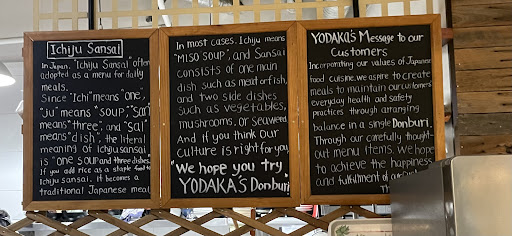 Ichiju Sansai
In Japan, "Ichiju Sansai" often
adopted as a menu for daily
meals.
Since "Ichi" means "one",
"ju" means "soup", "San"
means "three", and "Sai"
means "dish", the literal
meaning of Ichiju sansai
is "one soup and three dishes."
If you add rice as a staple food to
Ichiju sansai, it becomes a
traditional Japanese meal
In most cases, Ichiju means
"MISO SOUP", and Sansai
consists of one main
dish such as meat or fish,
and two side dishes
such as vegetables,
mushrooms, or seaweed.
And if you think our
culture is right for you,
"We hope you try
YODAKA'S Donburi"
YODAKA'S Message to our
Customers
Incorporating our values of Japanese
food cuisine, we aspire to create
meals to maintain our customers'
everyday health and safety
practices through arranging
balance in a single Donburi.
Through our carefully thought-
out menu items, we hope
to achieve the happiness
and fulfillment of our